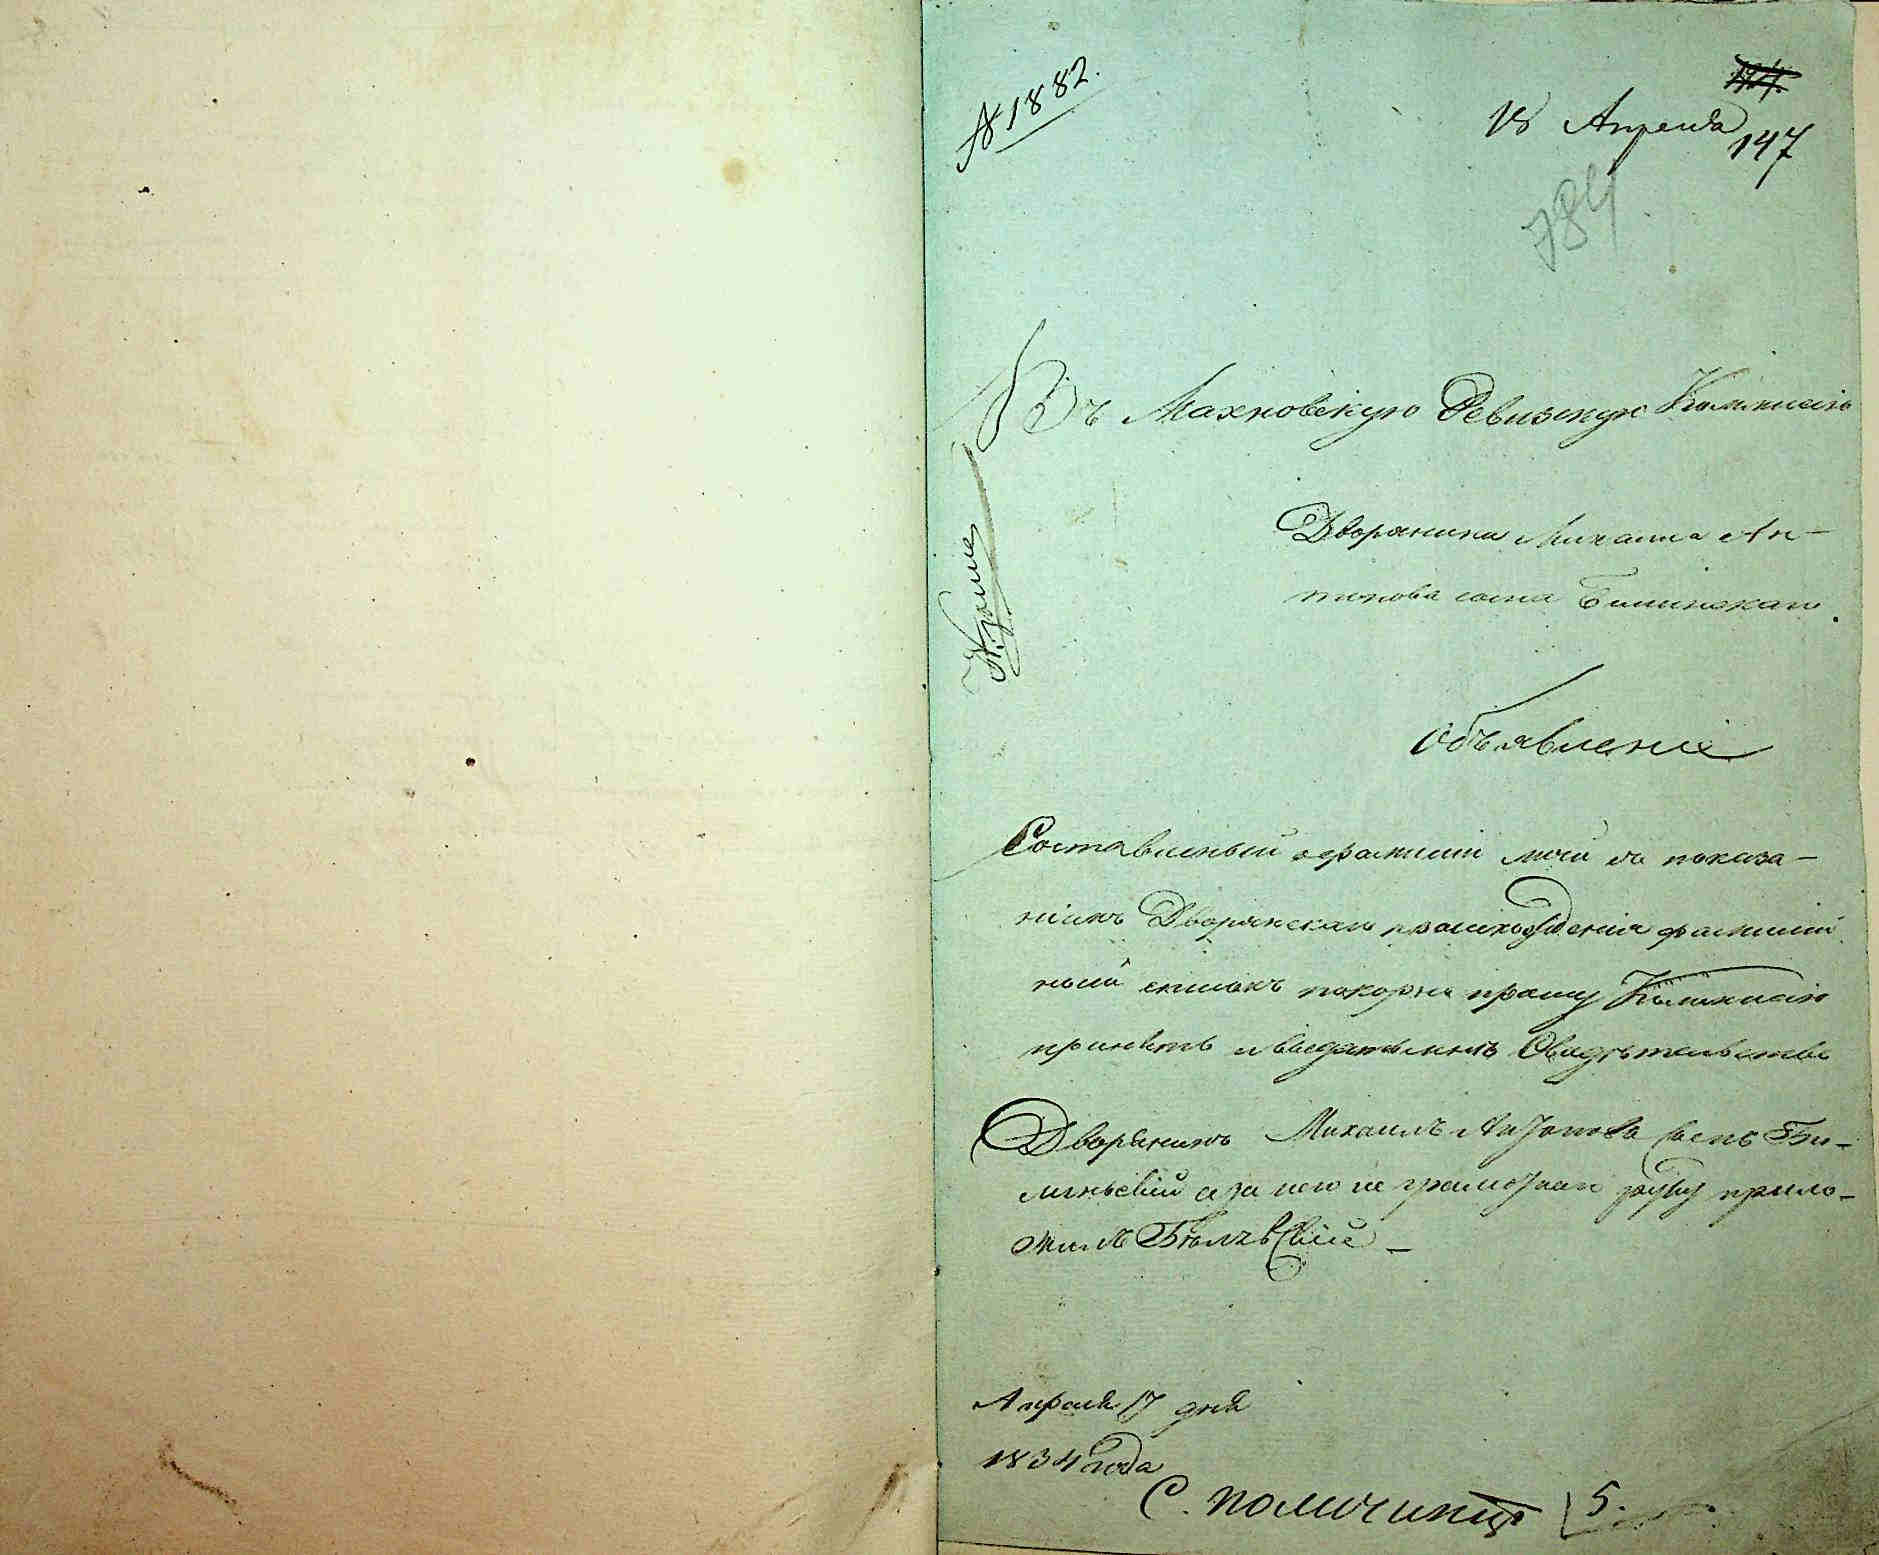 № 1882.
18 Апреля
147
784
Въ Махновскую Ревизскую Коммисію
Дворянина Михаила Ан-
тонова сына Билинскаго
Объявленіе
Составленный о фамиліи моей съ показа-
ніемъ Дворянскаго происхожденія фамилій
ный списокъ покорно прошу Коммисію
принять и выдать мнѣ Свидѣтельство
Дворянинъ Михаилъ Антоновъ сынъ Би-
линьскій а за него не грамотнаго руку прило-
жилъ
Апреля 17 дня
1834 года
С. Поличинцъ 5.